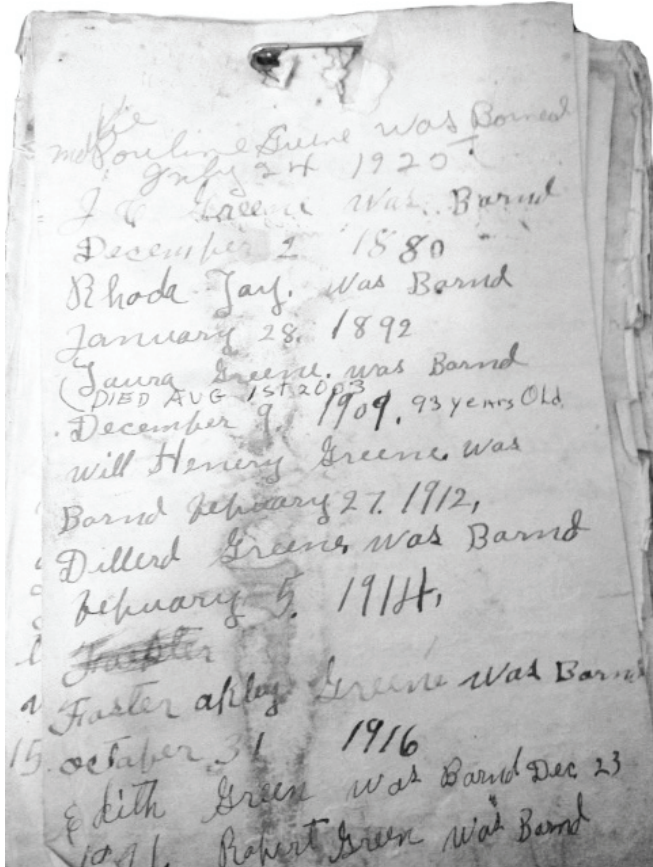 Pouline Greene was Borned
July 24 1925
J C Greene was Barnd
December 2 1880
Rhoda Jay. was Barnd
January 28. 1892
(Laura Greene. was Barnd
DIED AUG 1ST 2003
December 9. 1909. 93 years Old.
Will Henery Greene. was
Barnd Febuary 27. 1912,
Dillerd Greene was Barnd
Febuary 5. 1914,
Foster Greene was Barnd
15. octaber 31 1916
Edith Green was Barnd Dec 23
Robert Green was Barnd